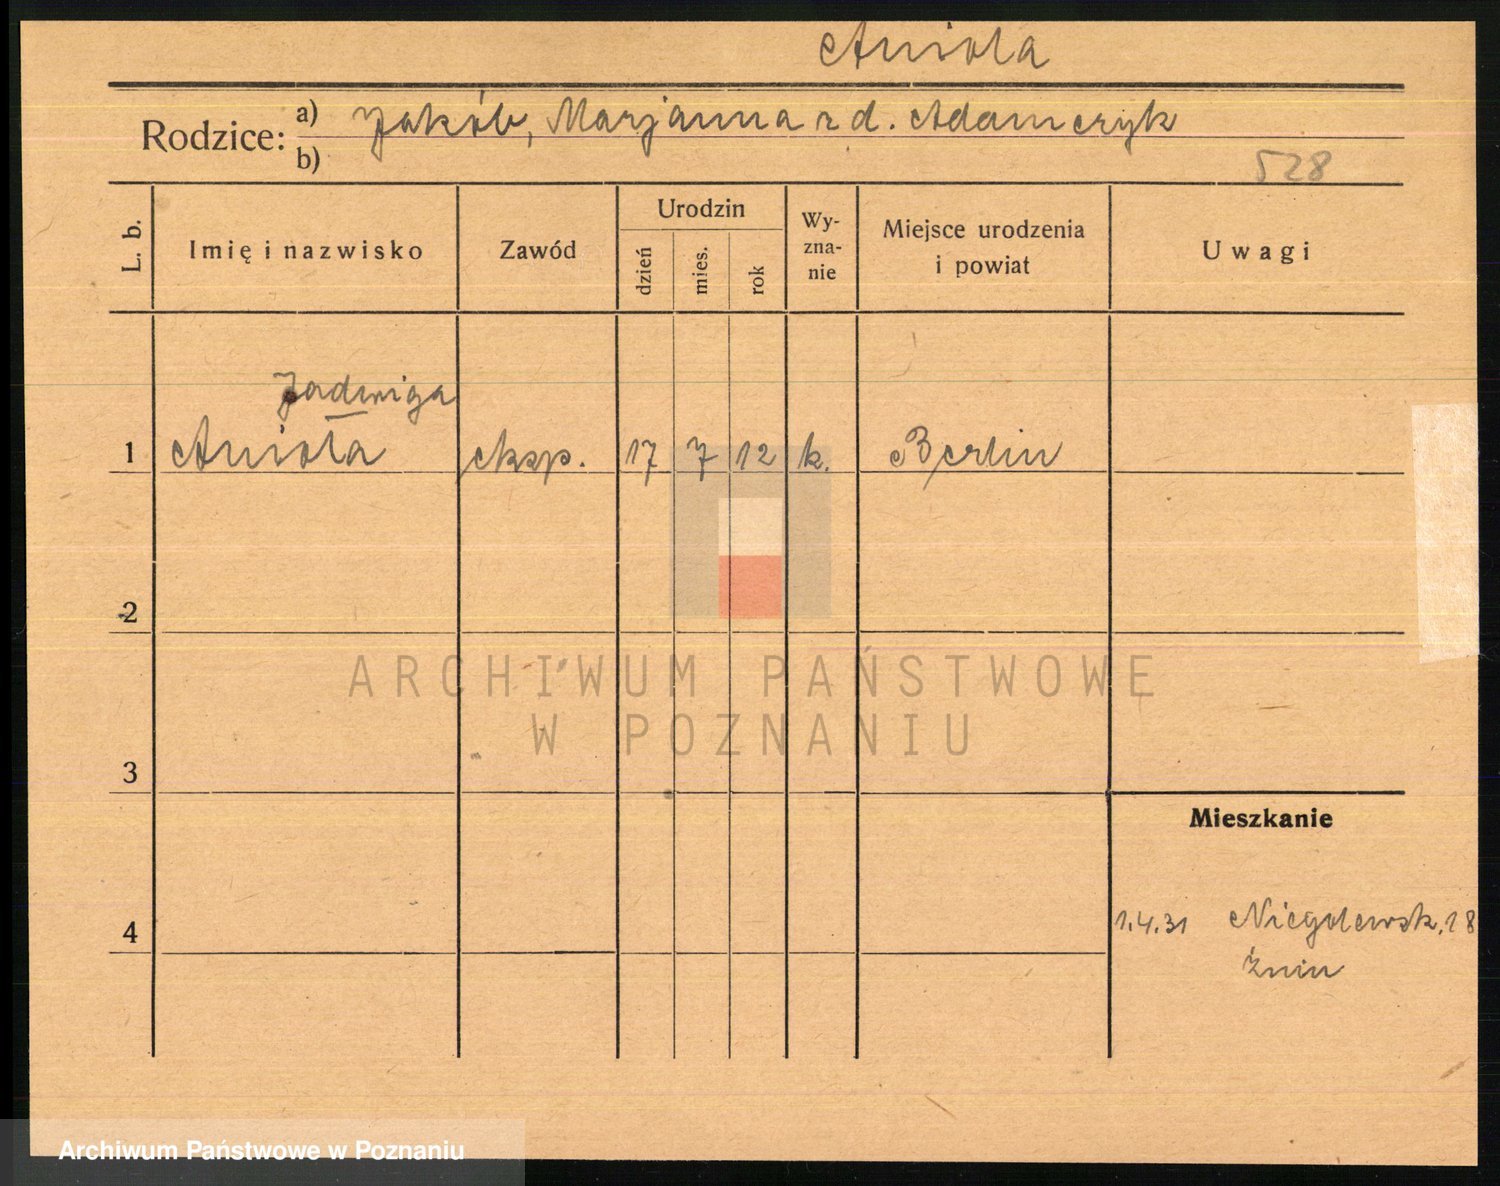 Anioła
Rodzice: a) Jakób, Marjanna rd. Adamczyk
b)
528
L. b. Imię i nazwisko Zawód Urodzin dzień mies. rok Wy- zna- nie Miejsce urodzenia i powiat Uwagi
Jadwiga
1 Anioła eksp. 17 7 12 k. Berlin
2
ARCHIWUM PAŃSTWOWE
W POZNANIU
3
Mieszkanie
4 1.4.31 Niegolewsk. 18
Żnin
Archiwum Państwowe w Poznaniu